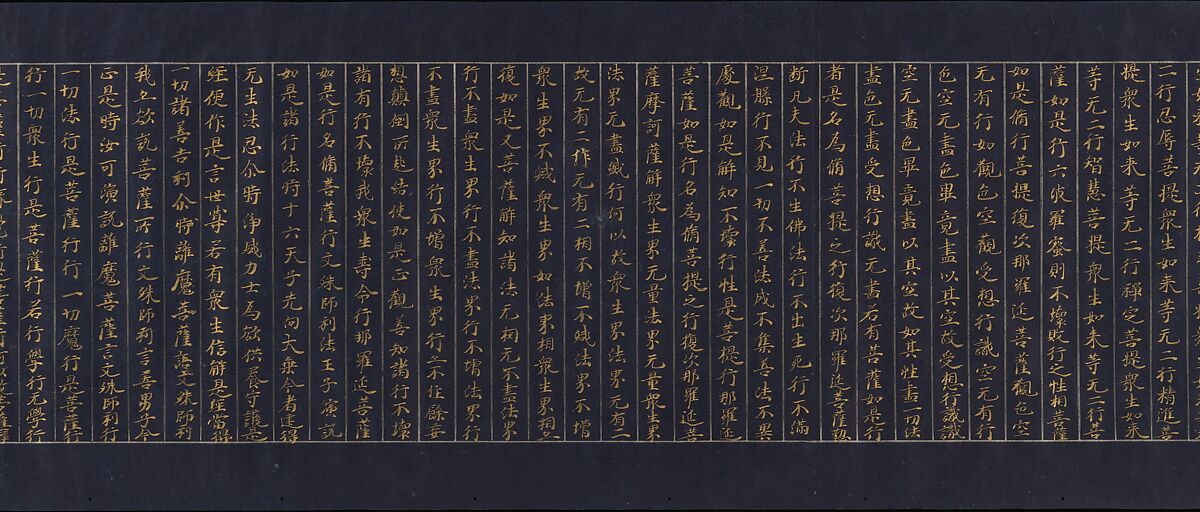 二行忍辱菩提衆生如来等无二行精進菩
提衆生如来等无二行禪定菩提衆生如来
等无二行智慧菩提衆生如来等无二行菩
薩如是行六波羅蜜則不壞敗行之性相菩薩
如是脩行菩提復次那羅延菩薩觀色空
无有行如觀色空觀受想行識空无有行
色空无盡色畢竟盡以其空故受想行識識
空无盡色畢竟盡以其空故如其性盡一切法
盡色无盡受想行識无盡若有菩薩如是行
者是名為脩菩提之行復次那羅延菩薩懃
斷凡夫法行不生佛法行不出生死行不滿
涅槃行不見一切不善法成不集善法不異
處觀如是解知不壞行性是菩提行那羅延
菩薩如是行名為脩菩提之行復次那羅延菩
薩摩訶薩解衆生界无量法界无量衆生界
法界无盡減行何以故衆生界法界无有二
故无有二作无有二相不增不減法界不增
衆生界不減衆生界如法界相衆生界相亦
復如是又菩薩解知諸法无相无不盡法界
行不盡衆生界行不盡法界行不增法界行
不盡衆生界行不增衆生界行亦不住餘妄
想顛倒所起結使如是正觀善知諸行不壞
諸有行不壞我衆生壽命行那羅延菩薩
如是行名脩菩薩行文殊師利法王子演説
如是諸行法時十六天子先向大乘今者逮得
无生法忍尒時浄威力士為欲供養守護是
經便作是言世尊若有衆生信解是經當得
一切諸善吉利尒時離魔菩薩語文殊師利
我亦欲説菩薩所行文殊師利言善男子今
正是時汝可演説離魔菩薩言文殊師利行
一切法行是菩薩行行一切魔行是菩薩行
行一切衆生行是菩薩行若行學行无學行